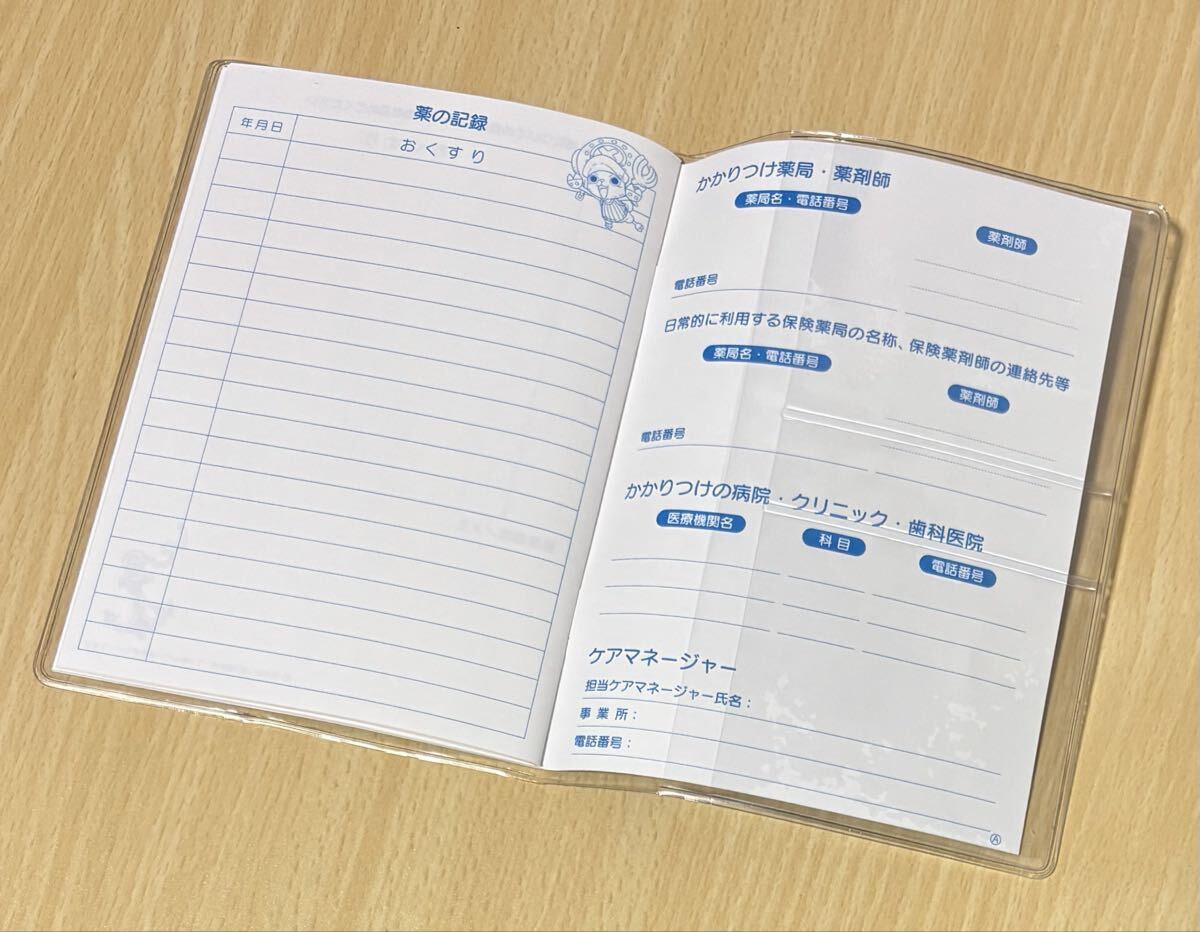 薬の記録
年月日
おくすり
かかりつけ薬局・薬剤師
薬局名・電話番号
薬剤師
電話番号
日常的に利用する保険薬局の名称、保険薬剤師の連絡先等
薬局名・電話番号
薬剤師
電話番号
かかりつけの病院・クリニック・歯科医院
医療機関名
科目
電話番号
ケアマネージャー
担当ケアマネージャー氏名：
事業所：
電話番号：
Ⓐ